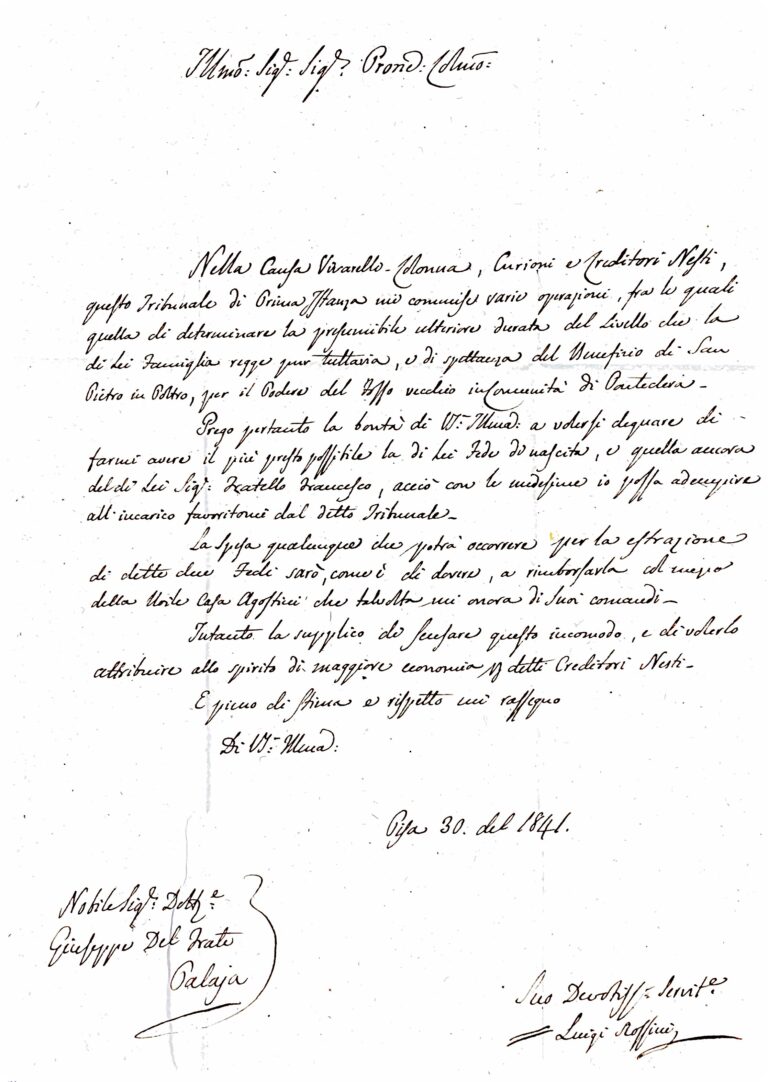 Illmo: Sigr: Sigr: Prone: Colmo:
Nella Causa Vivarello-Colonna, Curioni e Creditori Nesti,
questo Tribunale di Prima Istanza mi commise varie operazioni, fra le quali
quella di determinare la presumibile ulteriore durata del Livello che la
di Lei Famiglia regge pur tuttavia, e di spettanza del Benefizio di San
Pietro in, per il Podere del Fosso vecchio in Comunità di Pontedera-
Prego pertanto la bontà di VS: Illma: a volersi degnare di
farmi avere il più presto possibile la di Lei Fede di nascita, e quella ancora
del di Lei Sigr: Fratello Francesco, acciò con le medesime io possa adempire
all'incarico favoritomi dal detto Tribunale-
La Spesa qualunque che potrà occorrere per la estrazione
di dette due Fedi sarò, come è di dovere, a rimborsarla col mezzo
della Nobile Casa Agostini che talvolta mi onora di Suoi comandi-
Intanto la supplico di scusare questo incomodo, e di volerlo
attribuire allo spirito di maggiore economia p detti Creditori Nesti-
E pieno di stima e rispetto mi rassegno
Di VS: Illma:
Pisa 30. del 1841.
Nobile Sigr:
Giuseppe Del Frate
Palaja
Suo Devotiss: Servite
Luigi Rossini